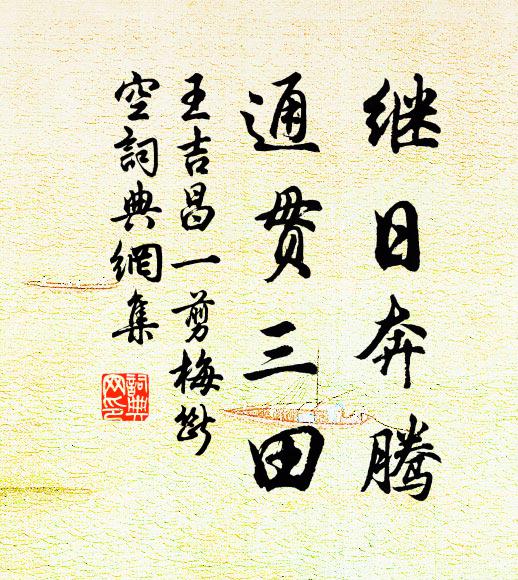 继日奔腾
通贯三田
王吉昌一剪梅断
空詞典網集
詞典
网印